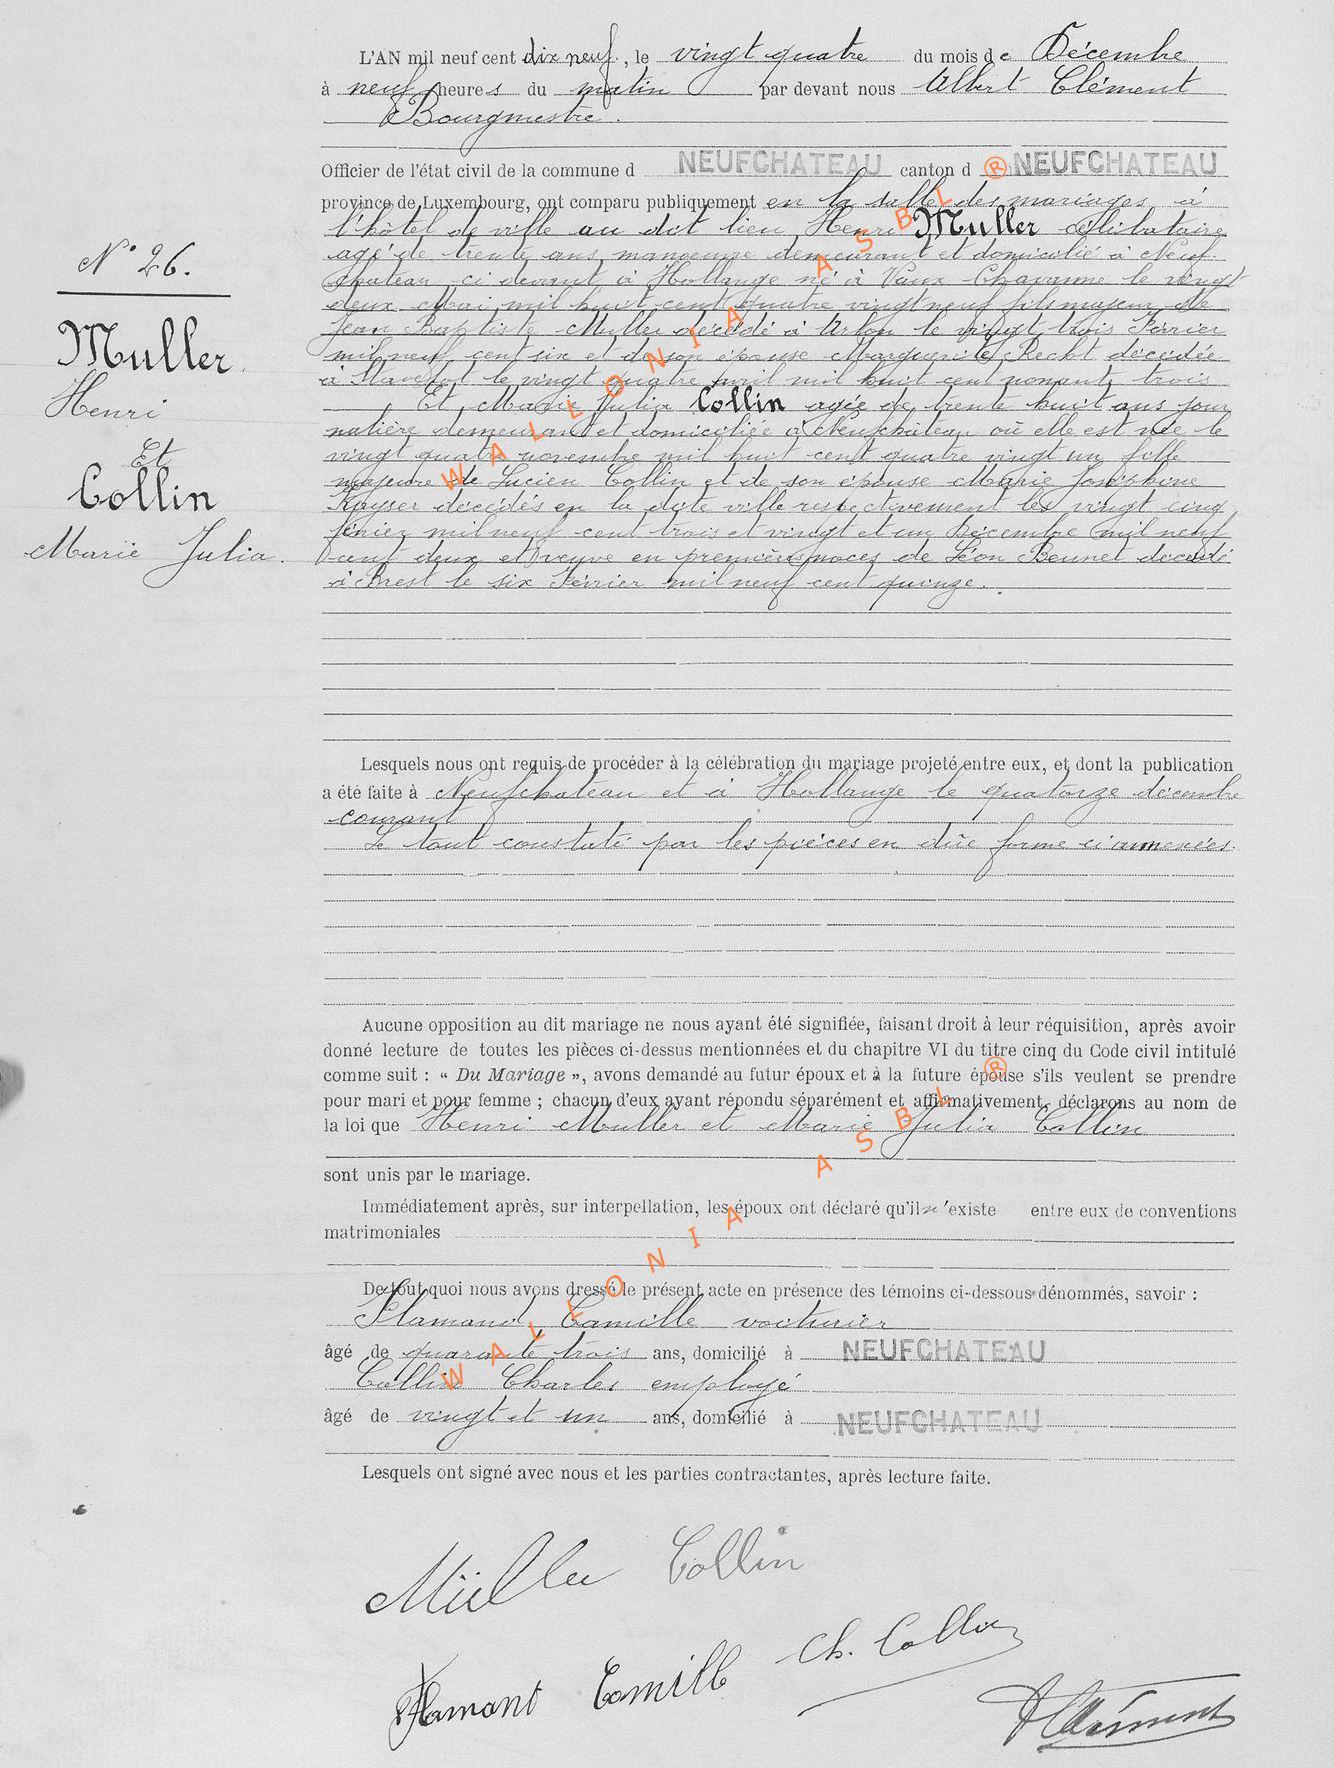 L'AN mil neuf cent dix neuf, le vingt quatre du mois de Décembre
à neuf heures du matin par devant nous Albert Clément
Bourgmestre.
Officier de l'état civil de la commune d NEUFCHATEAU canton d NEUFCHATEAU
province de Luxembourg, ont comparu publiquement en la salle des mariages à
l'hôtel de ville au dit lieu Henri Muller célibataire
agé de trente ans, manoeuvre demeurant et domicilié à Neuf-
chateau ci devant à Hollange né à Vaux Chavanne le vingt
deux Mai mil huit cent quatre vingt neuf fils majeur de
Jean Baptiste Muller décédé à Arlon le vingt trois Février
mil neuf cent six et de son épouse Marguerite Recht décédée
à Stavelot le vingt quatre avril mil huit cent nonante trois
Et Marie Julia Collin agée de trente huit ans jour
nalière demeurant et domiciliée à Neufchâteau où elle est née le
vingt quatre novembre mil huit cent quatre vingt un fille
majeure de Lucien Collin et de son épouse Marie Joséphine
Kayser décédés en la dite ville respectivement les vingt cinq
février mil neuf cent trois et vingt et un Décembre mil neuf
cent deux et veuve en premières noces de Léon Beunet décédé
à Brest le six Février mil neuf cent quinze.
N° 26.
Muller
Henri
Et
Collin
Marie Julia.
Lesquels nous ont requis de procéder à la célébration du mariage projeté entre eux, et dont la publication
a été faite à Neufchateau et à Hollange le quatorze décembre
courant
Le tout constaté par les pièces en dûe forme ci annexées.
Aucune opposition au dit mariage ne nous ayant été signifiée, faisant droit à leur réquisition, après avoir
donné lecture de toutes les pièces ci-dessus mentionnées et du chapitre VI du titre cinq du Code civil intitulé
comme suit : « Du Mariage », avons demandé au futur époux et à la future épouse s'ils veulent se prendre
pour mari et pour femme ; chacun d'eux ayant répondu séparément et affirmativement, déclarons au nom de
la loi que Henri Muller et Marie Julia Collin
sont unis par le mariage.
Immédiatement après, sur interpellation, les époux ont déclaré qu'il n'existe entre eux de conventions
matrimoniales
De tout quoi nous avons dressé le présent acte en présence des témoins ci-dessous dénommés, savoir :
Flamand Camille voiturier
âgé de quarante trois ans, domicilié à NEUFCHATEAU
Collin Charles employé
âgé de vingt et un ans, domicilié à NEUFCHATEAU
Lesquels ont signé avec nous et les parties contractantes, après lecture faite.
Müller Collin
Flamant Camille Ch. Collin
A Clément
WALLONIA ASBL ®
WALLONIA ASBL ®